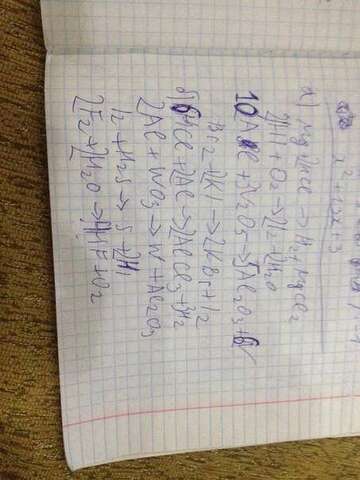 x² + 12x + 3
а) Mg 2HCl → H₂ + MgCl₂
2HI + O₂ → 2I₂ 2H₂O
10Al + 3V₂O₅ → 5Al₂O₃ + 6V
Br₂ 2KI → 2KBr + I₂
б) 6HCl + 2Al → 2AlCl₃ + 3H₂
2Al + WO₃ → W + Al₂O₃
I₂ + H₂S → S + 2HI
2F₂ + 2H₂O → 4HF + O₂